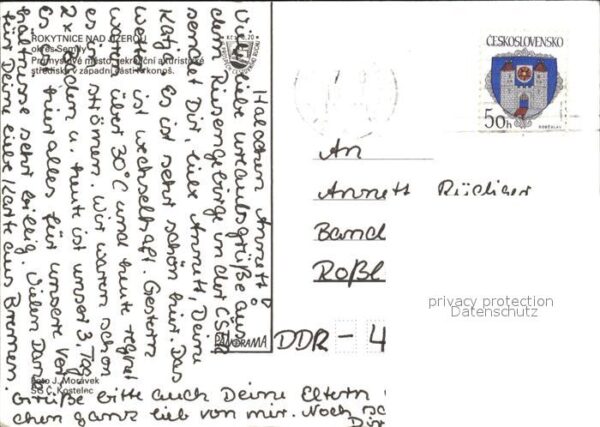 ROKYTNICE NAD JIZEROU
okres Semily
Průmyslové město, rekreační a turistické
středisko v západní části Krkonoš.
Kčs 1,20
Hallöchen Annett!
Viele liebe Urlaubsgrüße aus
dem Riesengebirge in der ČSFR
sendet Dir, liebe Annett, Deine
Katj. Es ist sehr schön hier. Das
Wetter ist wechselhaft. Gestern
waren über 30°C und heute regnet
es in Strömen. Wir waren schon
2x baden u. heute ist unser 3. Tag.
Es ist hier alles für unsere Ver-
hältnisse sehr billig. Vielen Dank
für Deine liebe Karte aus Bremen.
Grüße bitte auch Deine Eltern
chen ganz lieb von mir. Noch
Dir
Foto J. Morávek
SČ Č. Kostelec
PANORAMA
ČESKOSLOVENSKO
50h
An
Annett Rüdiger
Band
Roßl
DDR - 4
privacy protection
Datenschutz